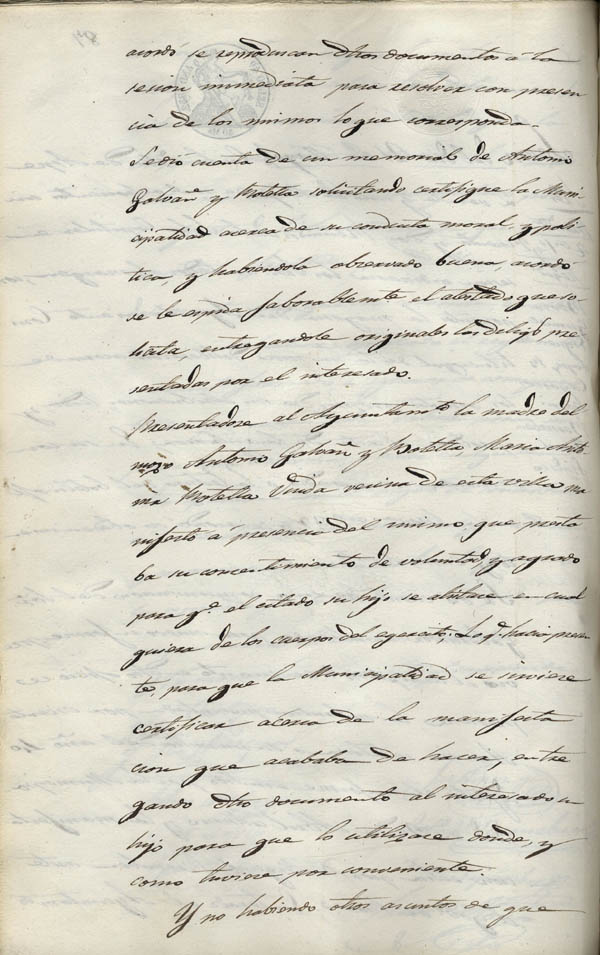 acordó se reproduzcan dhos documentos á la
sesion immediata para resolver con presen
cia de los mismos lo que corresponda.
Se dió cuenta de un memorial de Antonio
Galvañ y Motella solicitando certifique la Muni
cipalidad acerca de su conducta moral, y poli
tica, y habiendola observado buena, acordó
se le espida faborablemte el atestado que so-
licita, entregandole originales las diligs pre
sentadas por el interesado.
Presentadose al Ayuntamto la madre del
mozo Antonio Galvañ y Motella Maria Anto
nia Motella Viuda vecina de esta villa ma
nifestó á presencia del mismo que presta
ba su concentimiento de voluntad, y agrado
para qe el citado su hijo se alistase en cual
quiera de los cuerpos del egercito; Lo q. hacia presen
te, para que la Municipalidad se sirviere
certificar acerca de la manifesta
cion que acababa de hacer, entre
gando dho documento al interesado su
hijo para que lo utilizace donde, y
como tuviere por conveniente.
Y no habiendo otros asuntos de que